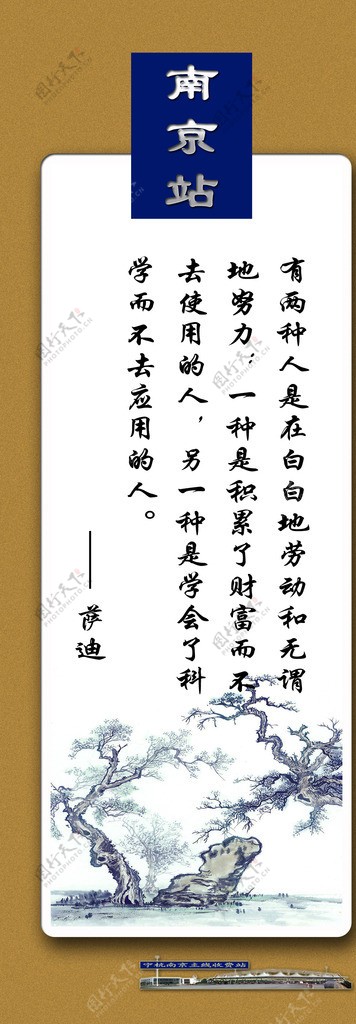 南京站
有两种人是在白白地劳动和无谓
地努力：一种是积累了财富而不
去使用的人，另一种是学会了科
学而不去应用的人。
——萨迪
宁杭南京主线收费站